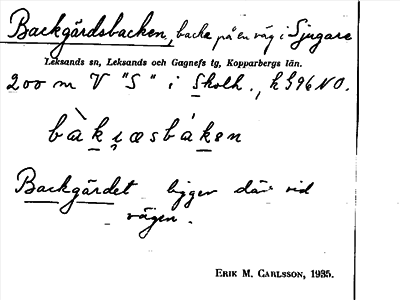 Backgärdsbacken, backe på en väg i Sjugare
Leksands sn, Leksands och Gagnefs tg, Kopparbergs län.
200 m V "S" i Skolh., k S96 NO.
Backgärdet ligger där vid
vägen.
ERIK M. CARLSSON, 1935.